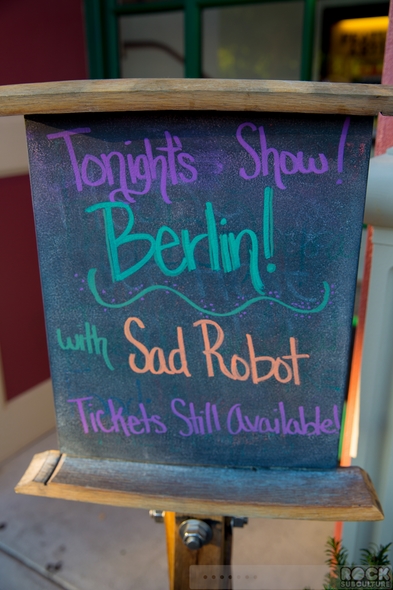 Tonight's Show!
Berlin!
with Sad Robot
Tickets Still Available!
ROCK
SUBCULTURE